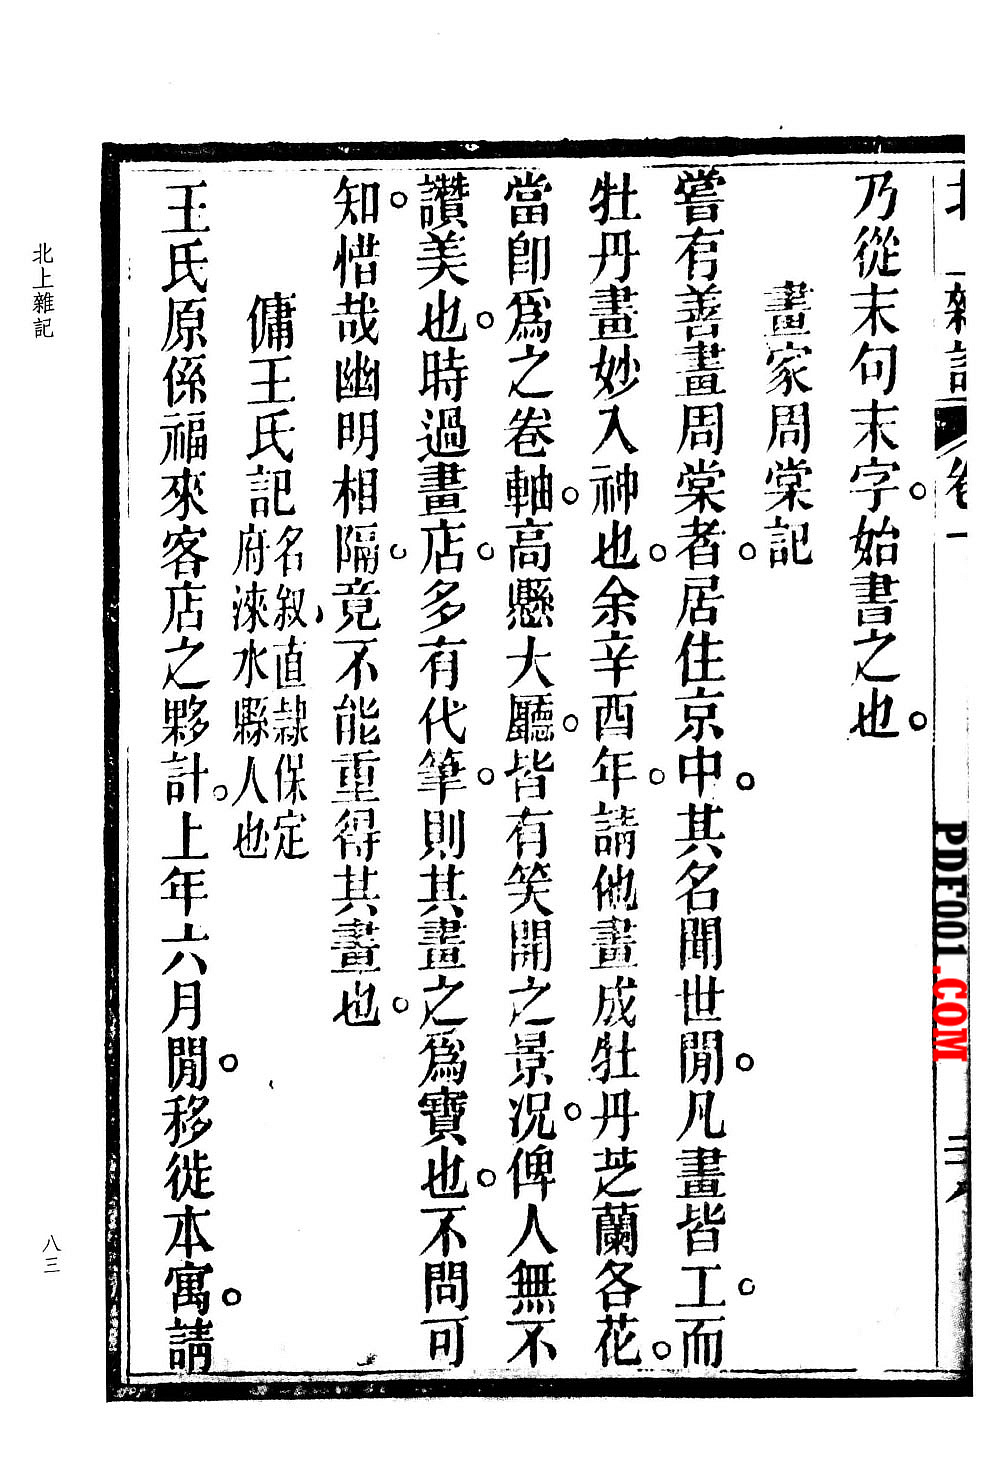 北上雜記 卷一
乃從末句末字。始書之也。
畫家周棠記
嘗有善畫周棠者。居住京中。其名聞世閒。凡畫皆工。而
牡丹畫妙入神也。余辛酉年。請他畫成牡丹芝蘭各花。
當卽爲之卷軸。高懸大廳。皆有笑開之景况。俾人無不
讚美也。時過畫店。多有代筆。則其畫之爲寶也。不問可
知。惜哉幽明相隔。竟不能重得其畫也。
傭王氏記 名叙直隷保定
府淶水縣人也
王氏原係福來客店之夥計。上年六月閒。移徙本寓。請
北上雜記
八三
PDF001.COM